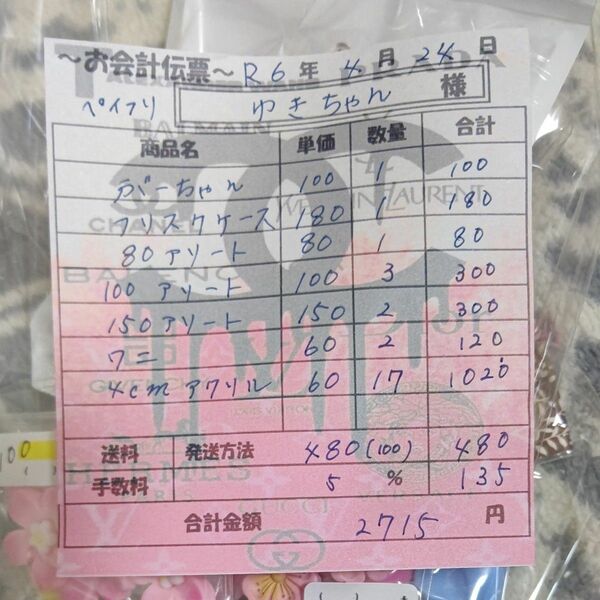 ~お会計伝票~ R6年4月24日
ペイフリ ゆきちゃん 様
商品名 単価 数量 合計
がーちゃん 100 1 100
フリスクケース 180 1 180
80アソート 80 1 80
100アソート 100 3 300
150アソート 150 2 300
ワニ 60 2 120
4cmアクリル 60 17 1020
送料 発送方法 480(100) 480
手数料 5 % 135
合計金額 2715 円
BALMAIN
CHANEL
LAURENT
HERMES
GUCCI